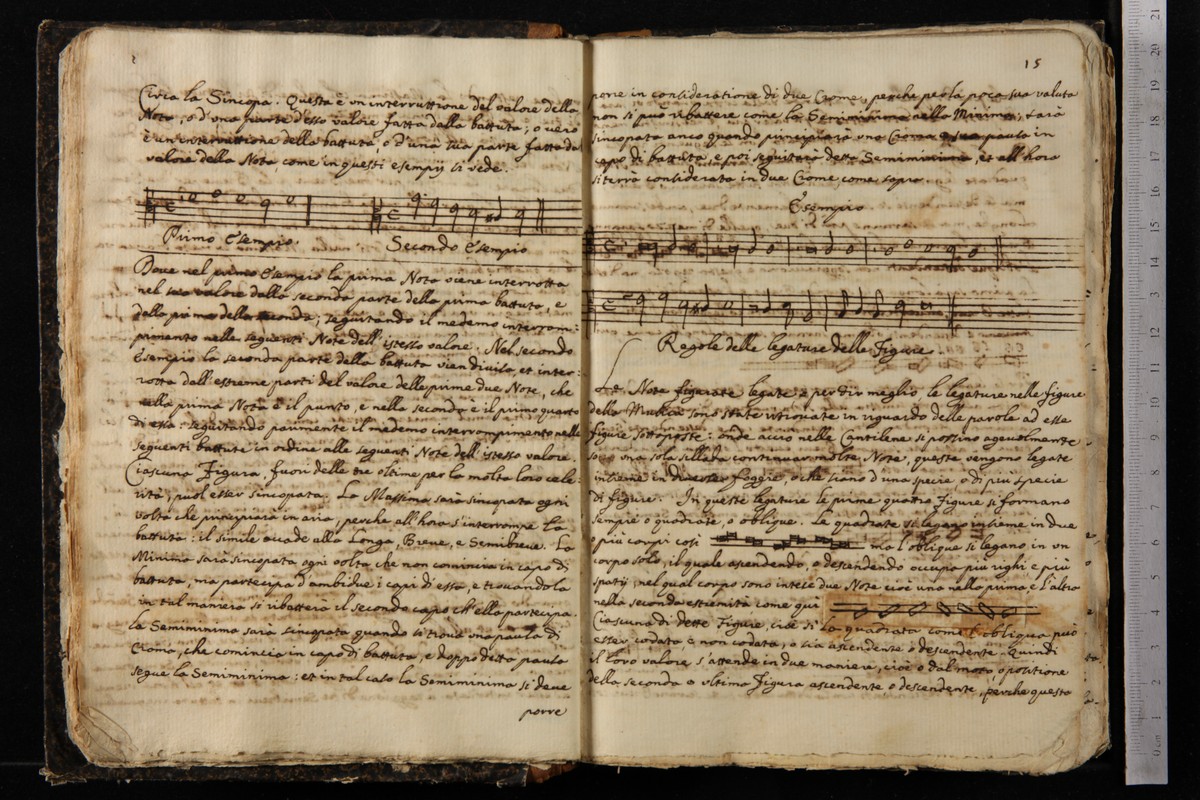 Circa la Sincopa. Questa è un interruttione del valore della
Nota, o d'una parte d'esso valore fatta dalla battuta; o vero
è un interruttione della battuta, o d'una sua parte fatta dal
valore della Nota come in questi esempij si vede.
Primo Esempio. Secondo Esempio
Dove nel primo Esempio la prima Nota viene interrotta
nel suo valore dalla seconda parte della prima battuta, e
dalla prima della seconda; seguitando il medemo interrom:
pimento nelle seguenti Note dell'istesso valore. Nel secondo
Esempio la seconda parte della battuta vien divisa, et inter:
rotta dall'estreme parti del valore delle prime due Note, che
nella prima Nota è il punto, e nella seconda è il primo quarto
di essa: seguitando parimente il medemo interrompimento nelle
seguenti battute in ordine alle seguenti Note dell'istesso valore.
Ciascuna Figura, fuori delle tre ultime per la molta loro cele:
rità, puol esser sincopata. La Massima sarà sincopata ogni
volta che principiarà in aria, perche all'hora s'interrompe la
battuta: il simile accade alla Longa, Breve, e Semibreve. La
Minima sarà sincopata ogni volta che non comincia in capo di
battuta, ma partecipa d'ambidue i capi di essa, e trovandola
in tal maniera si ribatterà il secondo capo ch'ella partecipa.
La Semiminima sarà sincopata quando si trova una pausa di
Croma, che comincia in capo di battuta, e doppo detta pausa
segue la Semiminima: et in tal caso la Semiminima si deve
porre
15
porre in consideratione di due Crome, perche per la poca sua valuta
non si può ribattere come la Semiminima nella Minima; sarà
sincopata anco quando principiarà una Croma o sua pausa in
capo di battuta, e poi seguitarà detta Semiminima, et all'hora
si terrà considerata in due Crome come sopra.
Esempio
Regole delle legature delle Figure
Le Note figurate legate, e per dir meglio le legature nelle figure
della Musica sono state ritrovate in riguardo delle parole ad esse
figure sottoposte: onde acciò nelle Cantilene si possino agevolmente
sotto una sola sillaba continuar molte Note, queste vengono legate
insieme in diverse foggie, o che siano d'una specie o di più specie
di figure. In queste legature le prime quattro Figure si formano
sempre o quadrate, o oblique. Le quadrate si legano insieme in due
o più corpi così ma l'oblique si legano in un
corpo solo, il quale ascendendo, o descendendo occupa più righi e più
spatij, nel qual corpo sono intese due Note cioè una nella prima, e l'altra
nella seconda estremità come qui
Ciascuna di dette Figure, cioè sì la quadrata come l'obliqua può
esser codata, e non codata, o sia ascendente o descendente. Quindi
il loro valore s'attende in due maniere, cioè o dal moto o positione
della seconda o ultima Figura ascendente o descendente, perche questo